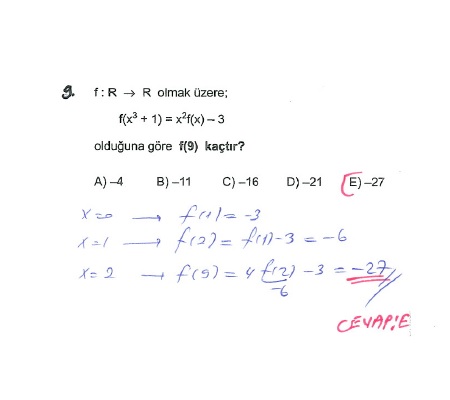 9. f : R → R olmak üzere;
f(x³ + 1) = x²f(x) – 3
olduğuna göre f(9) kaçtır?
A) –4 B) –11 C) –16 D) –21 E) –27
x=0 → f(1) = -3
x=1 → f(2) = f(1)-3 = -6
x=2 → f(9) = 4 f(2) -3 = -27
-6
CEVAP:E